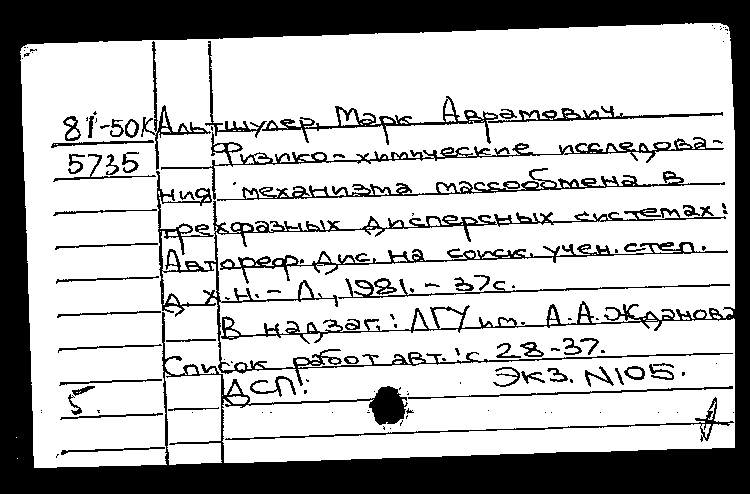 81-50К Альтшулер, Марк Аврамович.
5735 Физико-химические исследова-
ния механизма массообмена в
трехфазных дисперсных системах:
Автореф. дис. на соиск. учен. степ.
д. х.н. - Л., 1981. - 37с.
В надзаг.: ЛГУ им. А.А.Жданова
Список работ авт.: с. 28-37.
ДСП! Экз. N105.
5.